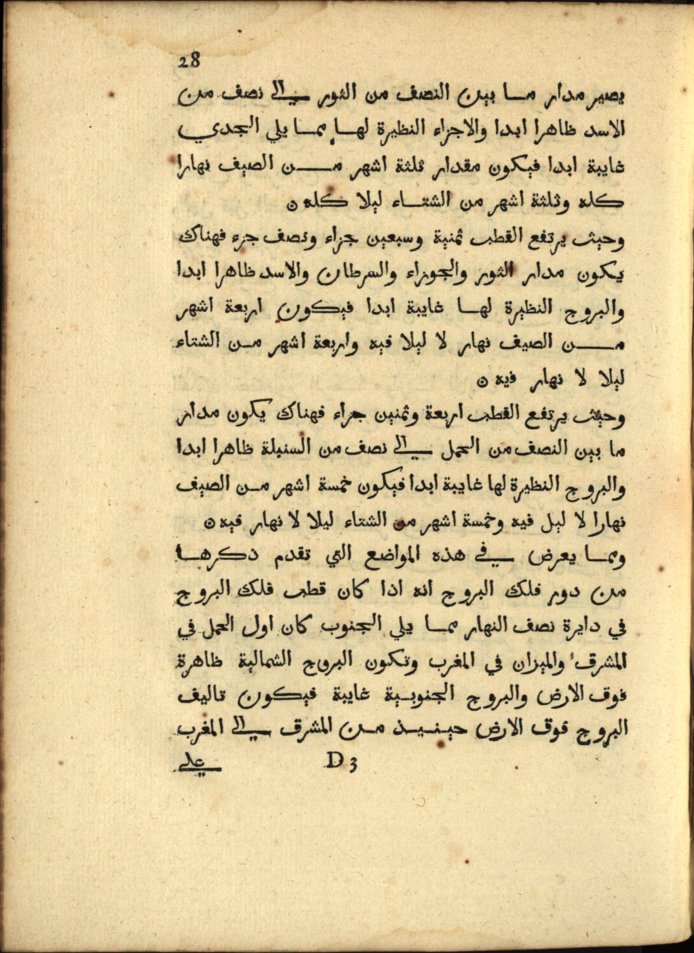 28
يصير مدار ما بين النصف من الثور الى نصف من
الاسد ظاهرا ابدا والاجزاء النظيرة لها مما يلي الجدي
غايبة ابدا فيكون مقدار ثلثة اشهر من الصيف نهارا
كله وثلثة اشهر من الشتاء ليلا كله ن
وحيث يرتفع القطب ثمنية وسبعين جزاء ونصف جزء فهناك
يكون مدار الثور والجوزاء والسرطان والاسد ظاهرا ابدا
والبروج النظيرة لها غايبة ابدا فيكون اربعة اشهر
من الصيف نهار لا ليلا فيه واربعة اشهر من الشتاء
ليلا لا نهار فيه ن
وحيث يرتفع القطب اربعة وثمنين جزاء فهناك يكون مدار
ما بين النصف من الحمل الى نصف من السنبلة ظاهرا ابدا
والبروج النظيرة لها غايبة ابدا فيكون خمسة اشهر من الصيف
نهارا لا ليل فيه وخمسة اشهر من الشتاء ليلا لا نهار فيه ن
ومما يعرض في هذه المواضع التي تقدم دكرها
من دور فلك البروج انه اذا كان قطب فلك البروج
في دايرة نصف النهار مما يلي الجنوب كان اول الحمل في
المشرق والميزان في المغرب وتكون البروج الشمالية ظاهرة
فوق الارض والبروج الجنوبية غايبة فيكون تاليف
البروج فوق الارض حينيذ من المشرق الى المغرب
D 3 على